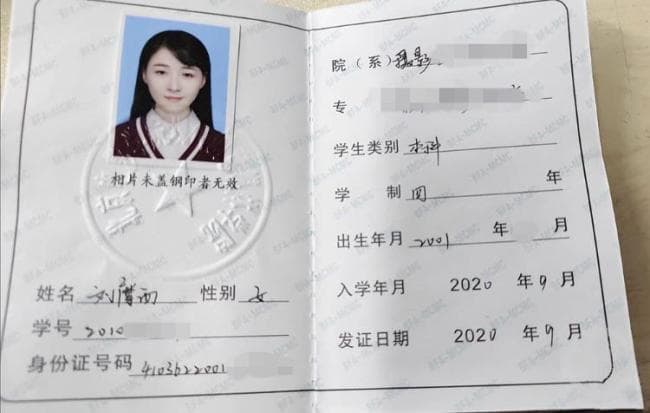 相片未盖钢印者无效
姓名 刘 西 性别 女
学号 2010
身份证号码 4103622001
院（系）摄影
专
学生类别 本科
学 制 四 年
出生年月 2001 年 月
入学年月 2020 年 9 月
发证日期 2020 年 9 月